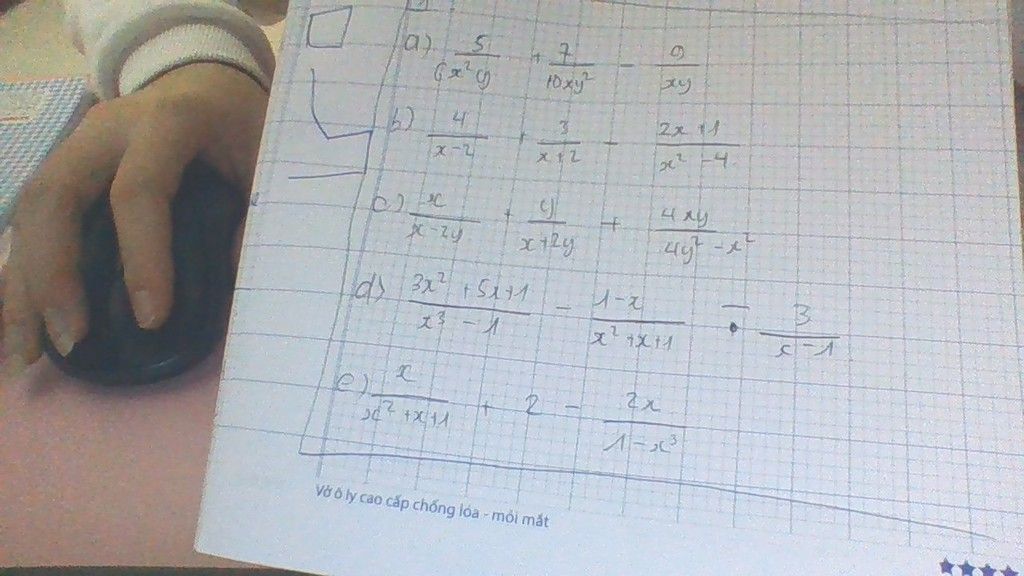 a) 5/(6x²y) + 7/(10xy²) - 9/(xy)
b) 4/(x-2) + 3/(x+2) - (2x+1)/(x²-4)
c) x/(x-2y) + y/(x+2y) + 4xy/(4y²-x²)
d) (3x²+5x+1)/(x³-1) - (1-x)/(x²+x+1) - 3/(x-1)
e) x/(x²+x+1) + 2 - 2x/(1-x³)
Vở ô ly cao cấp chống lóa - mỏi mắt